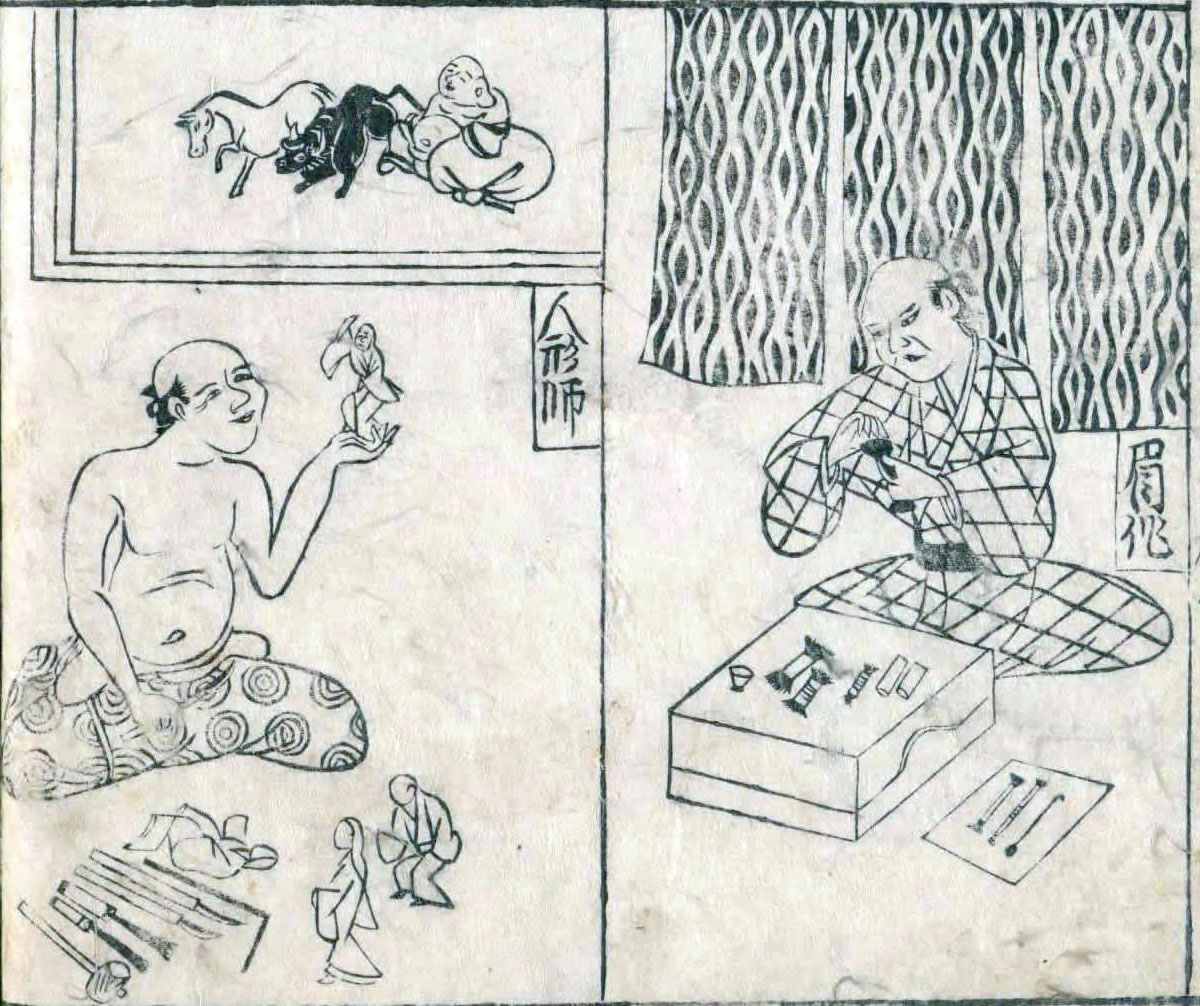 眉作
人形師